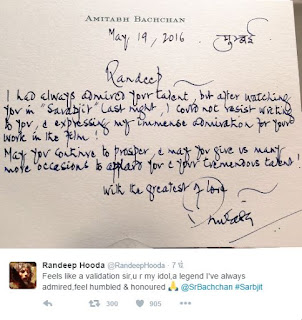 AMITABH BACHCHAN
May 19, 2016 मुम्बई
Randeep
I had always admired your talent, but after watching
you in "Sarabjit" last night, I could not resist writing
to you, & expressing my immense admiration for your
work in the film!
May you continue to prosper, & may you give us many
more occasions to applaud you & your tremendous talent!
with the greatest of love
Randeep Hooda @RandeepHooda · 7
Feels like a validation sir,u r my idol,a legend I've always
admired,feel humbled & honoured 🙏 @SrBachchan #Sarbjit